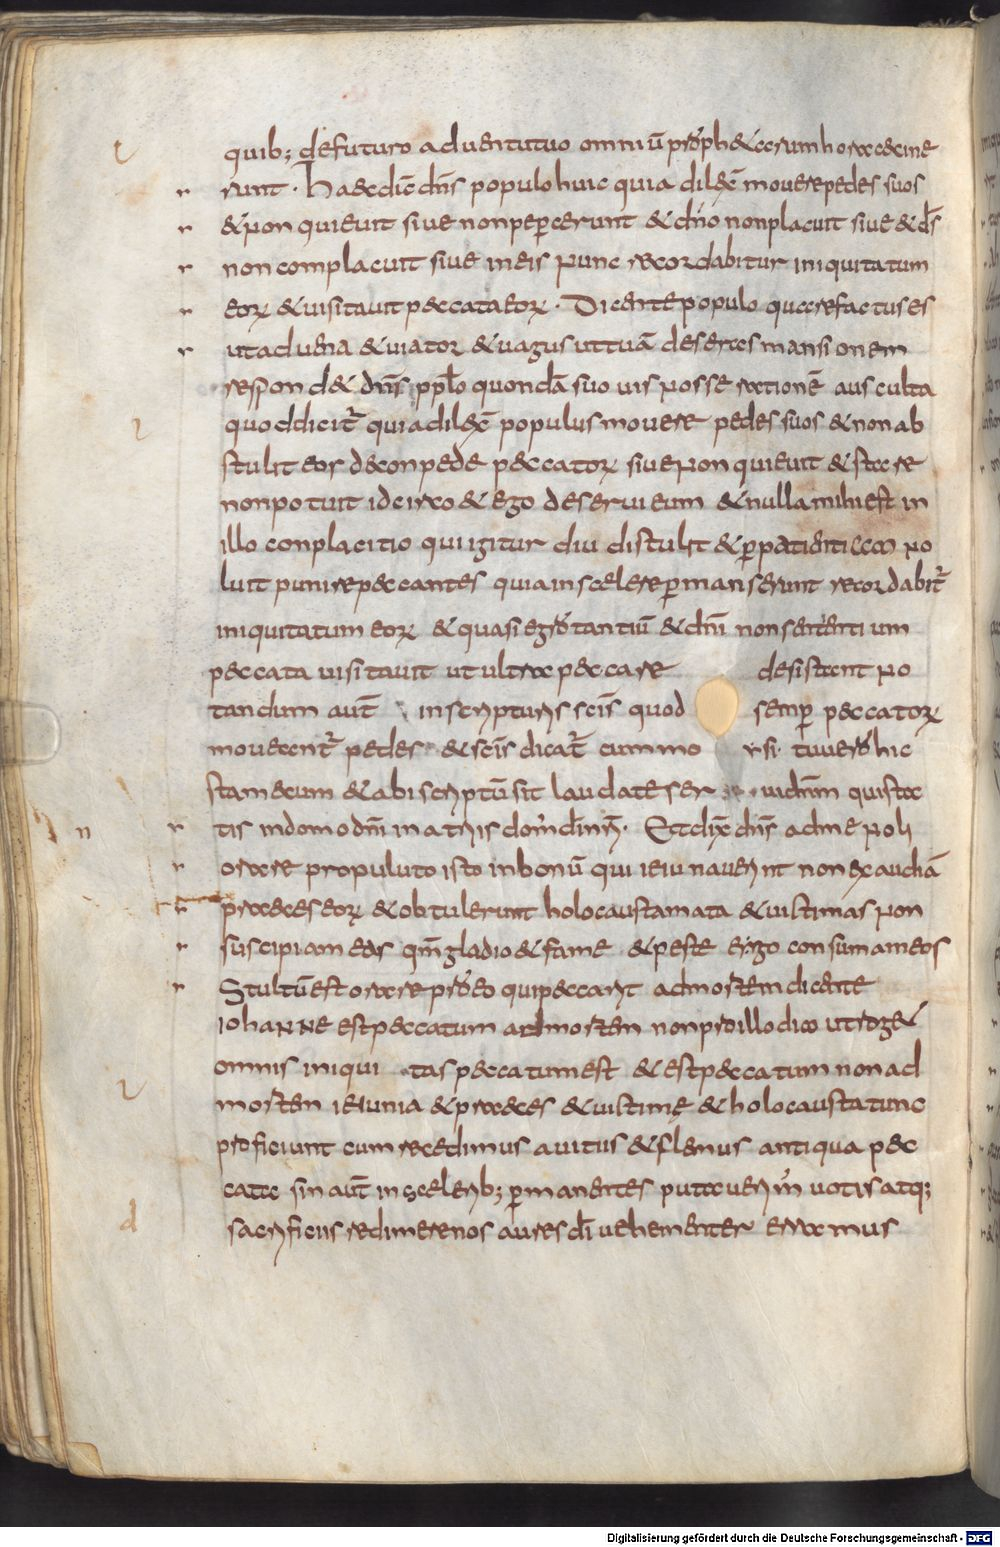 quib; defuturo aduentutuo omniū proph&arum hora cecine
runt · Haec dic̄ dn̄s populo huic quia dilex̄ mouere pedes suos
& non quieuit siue non pepercerunt & dn̄o non placuit siue & dn̄s
non complacuit siue in eis nunc recordabitur iniquitatum
eorum & uisitauit peccata eorum · Dicente populo quare factus es
ut aduena & uiator & uagus ut tuā deseras mansionem
respond& dn̄s pp̄lo quondā suo uis nosse rationē ausculta
quod dicit̄ quia dilex̄ populus mouere pedes suos & non ab
stulit eos de conpede peccatorum siue non quieuit & stare
non potuit idcirco & ego deserui eum & nulla mihi est in
illo conplacitio qui igitur diu distulit & per patientiam no
luit punire peccantes quia in scelere permanserunt recordabit̄
iniquitatum eorum & quasi egrotantiū & dn̄i non sententium
peccata uisitauit ut ultra peccare desistant no
tandum aut̄ in scripturis scīs quod semper peccatorum
moueant̄ pedes & scīs dicat̄ cum mo rsi tu uero hic
sta mecum & abi scriptū sit laudate ser ui dn̄m qui sta
tis in domo dn̄i in atriis dom̄ di n̄ri · Et dix̄ dn̄s ad me noli
orare pro populo isto in bonū qui ieiunauerint non exaudiā
praeces eorum & obtulerint holocaustamata & uictimas non
suscipiam eas qm̄ gladio & fame & peste ergo consumam eos
Stultū est orare pro eo qui peccarit ad mortem dicente
iohanne est peccatum ad mortem non pro illo dico ut roget
omnis iniqui tas peccatum est & est peccatum non ad
mortem ieiunia & praeces & uictimę & holocausta tunc
proficiunt cum recedimus a uitiis & flemus antiqua pec
cata sin aut̄ in scelerib; permanentes putauerim̄ uotis atq;
sacrificiis redimere nos aures dī uehementer erramus
Digitalisierung gefördert durch die Deutsche Forschungsgemeinschaft - DFG